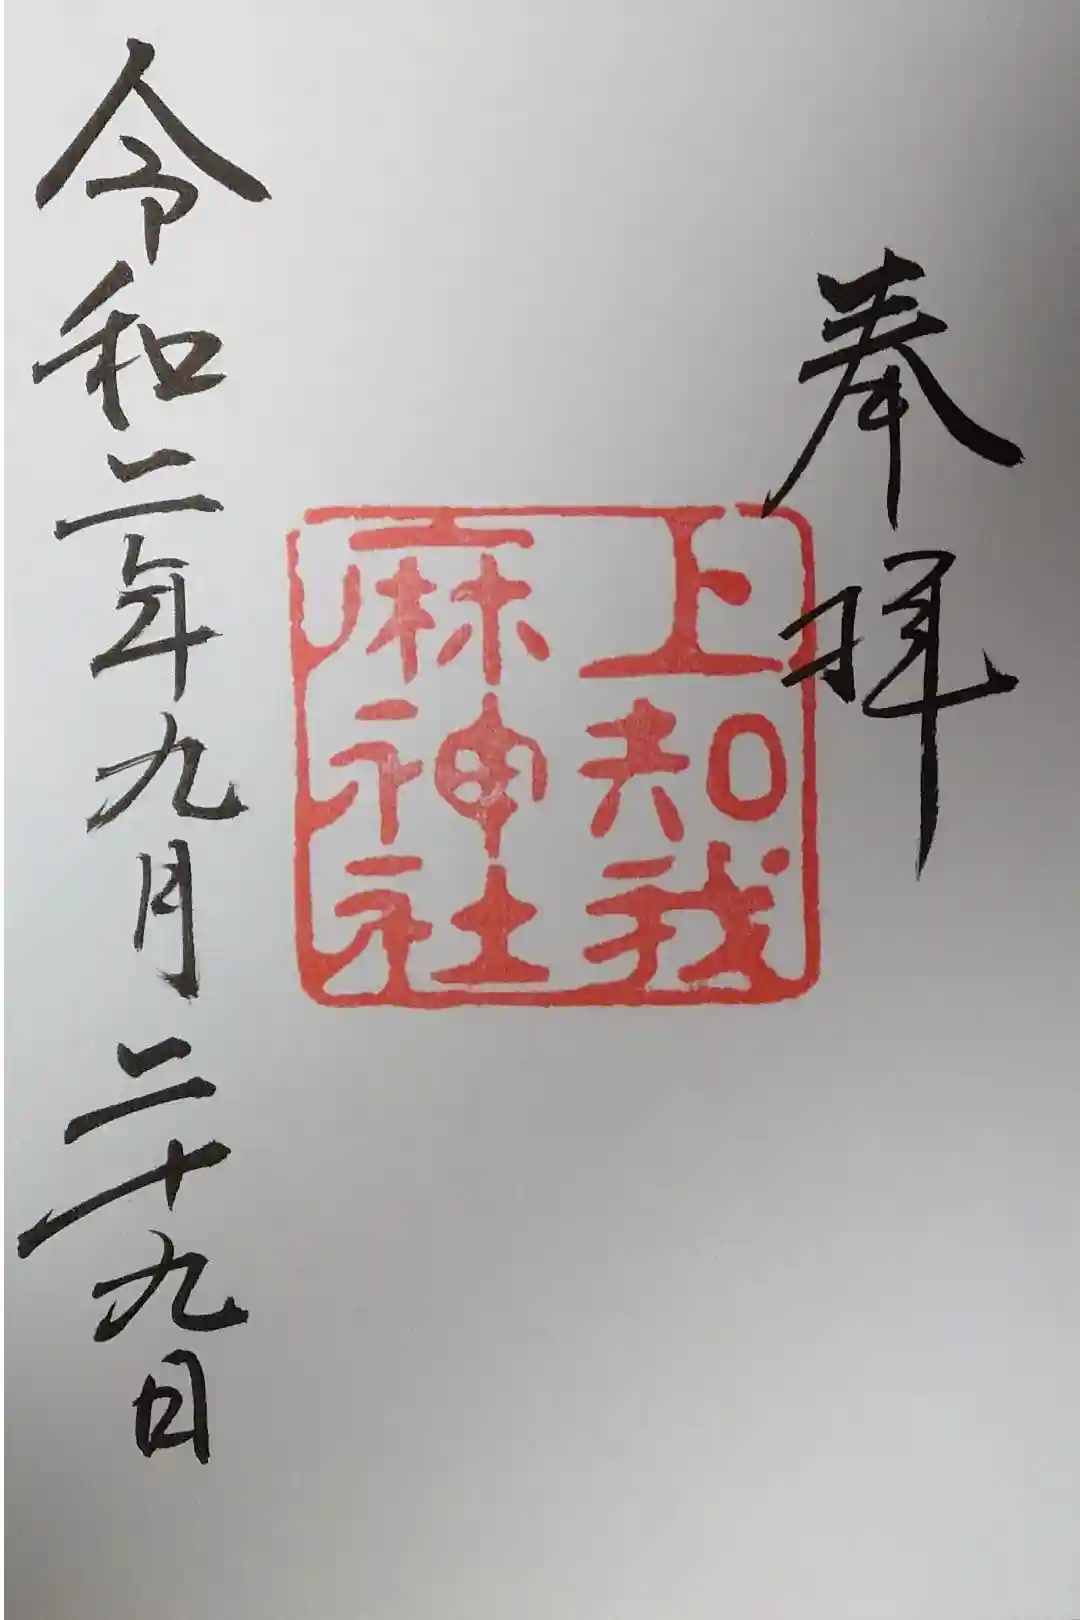 奉拝
上知我
麻神社
令和二年九月二十九日